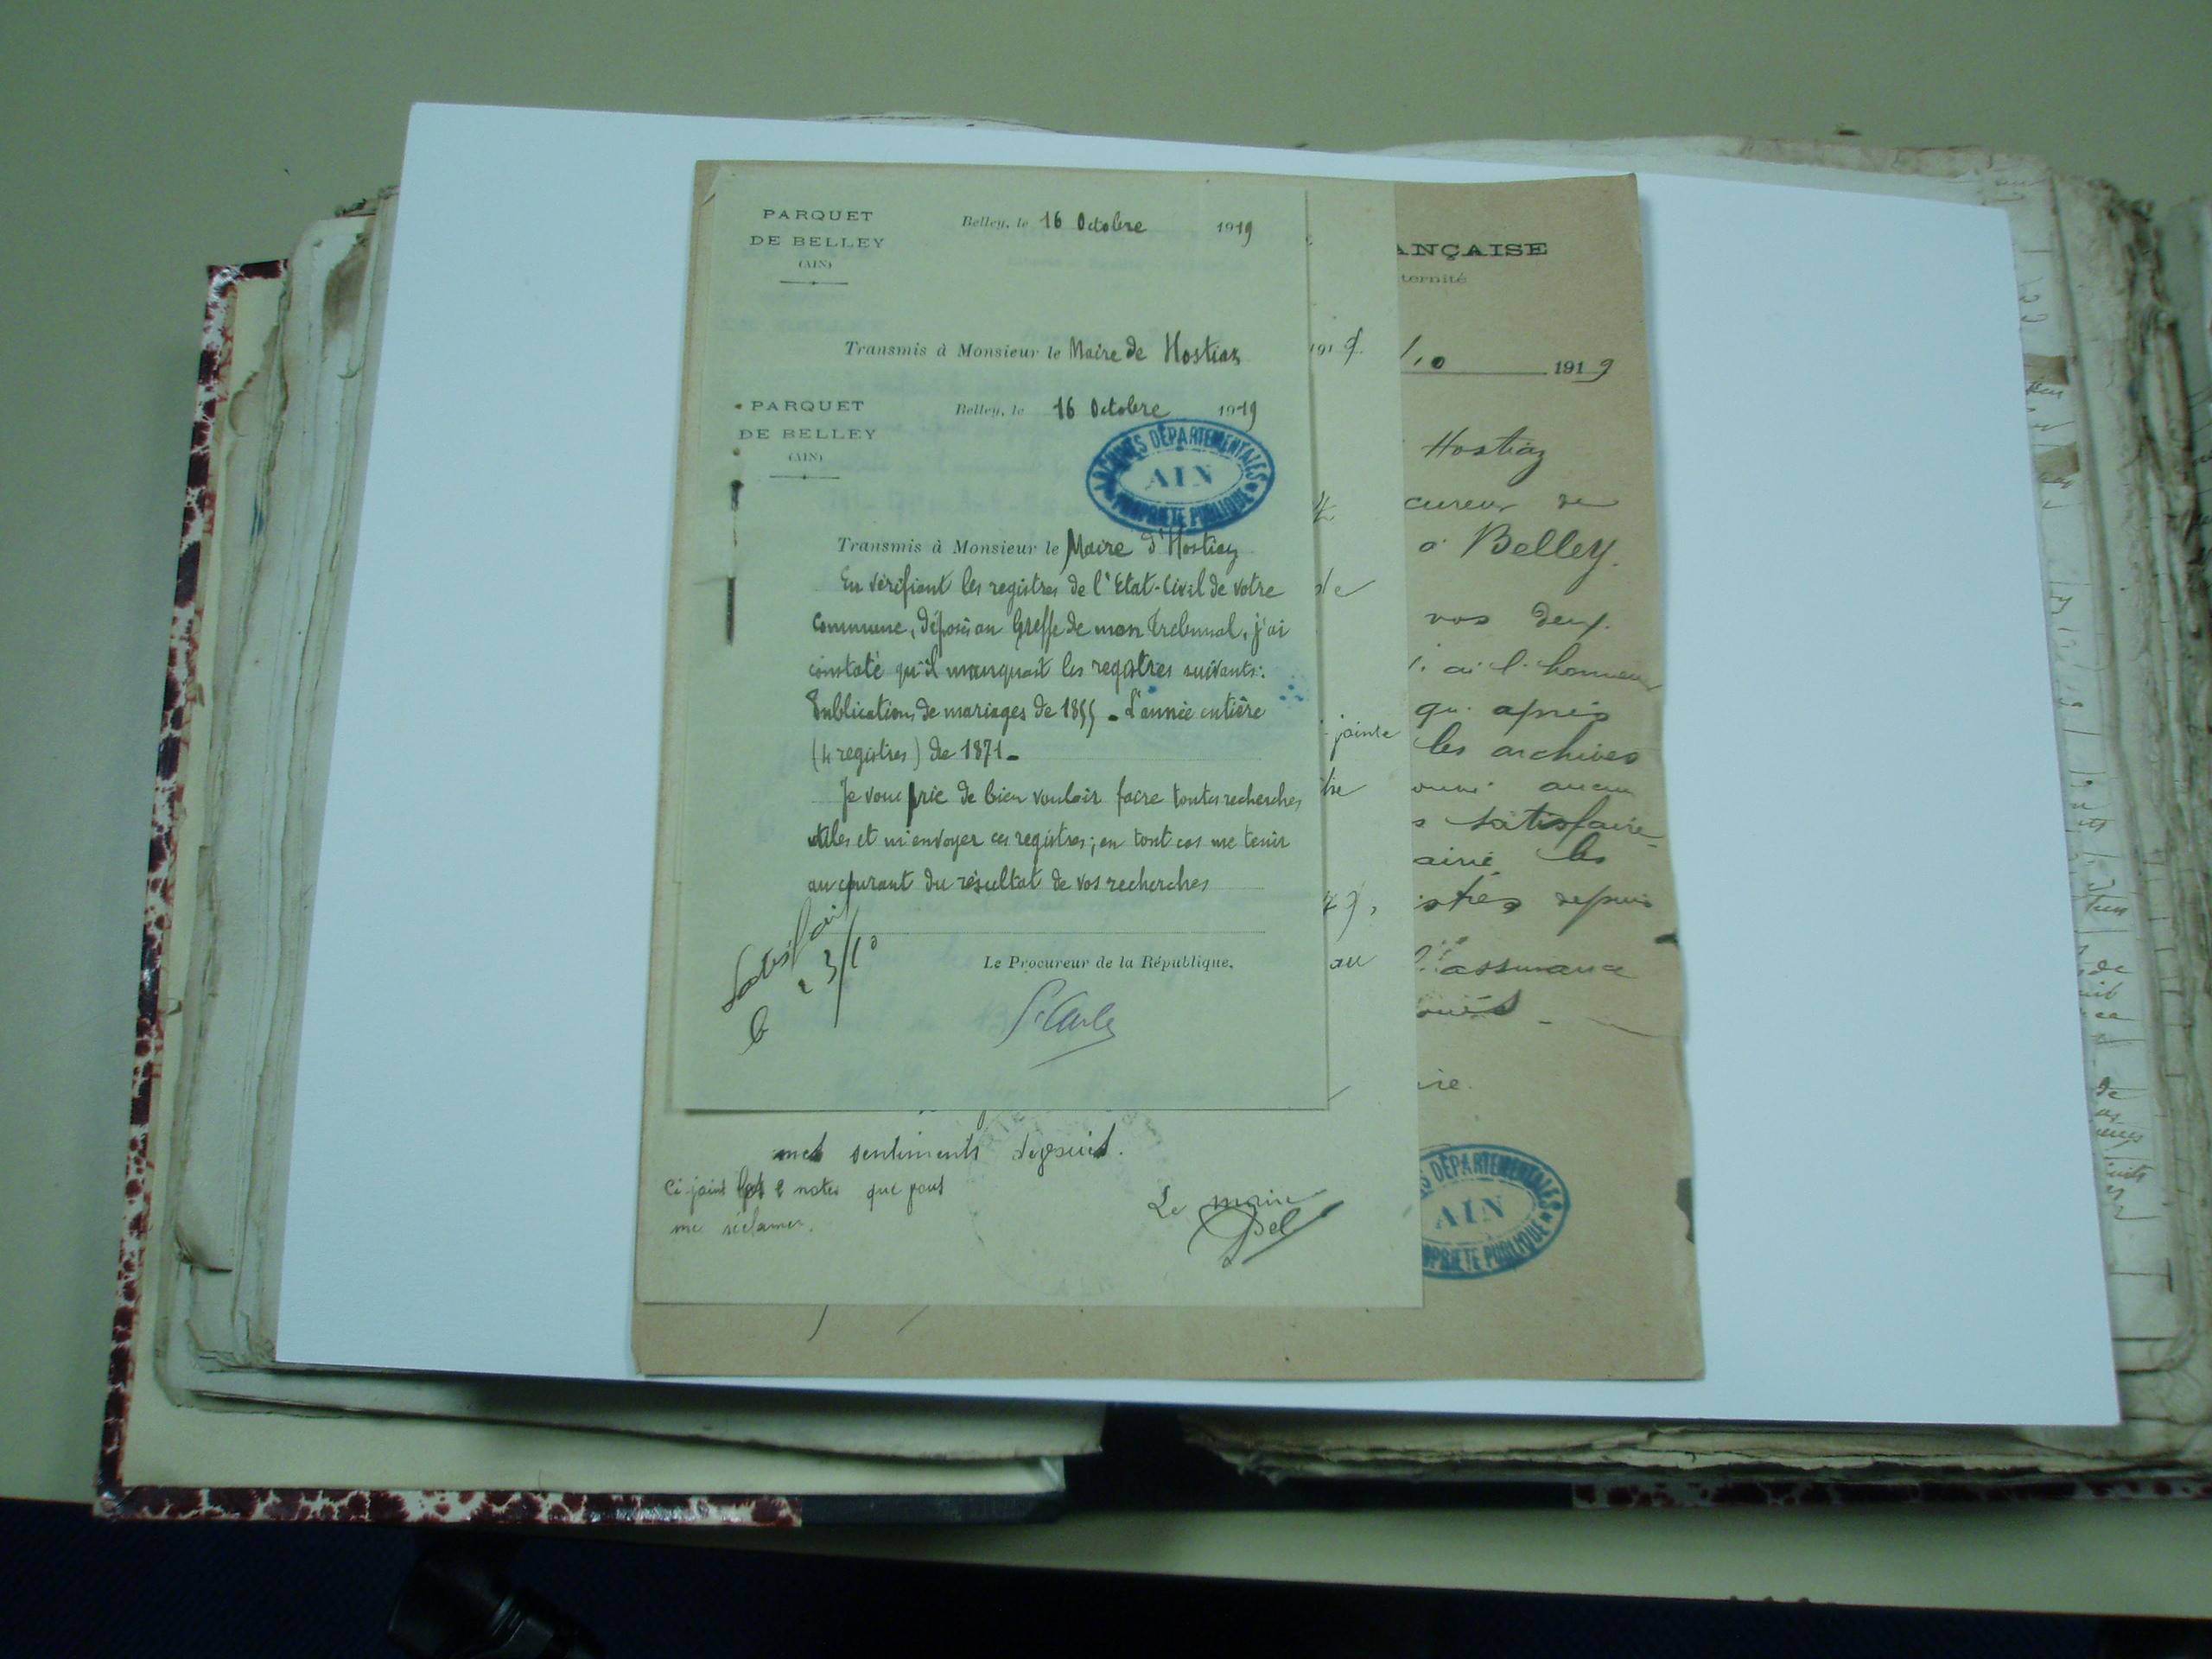 PARQUET
DE BELLEY
(AIN)
Belley, le 16 Octobre 1919
Transmis à Monsieur le Maire de Hostiaz
PARQUET
DE BELLEY
(AIN)
Belley, le 16 Octobre 1919
ARCHIVES DÉPARTEMENTALES
AIN
PROPRIÉTÉ PUBLIQUE
Transmis à Monsieur le Maire d'Hostiaz
En vérifiant les registres de l'Etat-Civil de votre
Commune, déposés au Greffe de mon Tribunal, j'ai
constaté qu'il manquait les registres suivants:
Publications de mariages de 1855 - L'année entière
(4 registres) de 1871 -
Je vous prie de bien vouloir faire toutes recherches
utiles et m'envoyer ces registres; en tout cas me tenir
au courant du résultat de vos recherches
Satisfait
23/10
Le Procureur de la République,
mes sentiments
Ci-joint les 2 notes que
me réclamer.
Le maire
ANÇAISE
ternité
1919
/10 1919
Hostiaz
cureur de
à Belley.
de
vos deux
j'ai l'honneur
qu'après
jointe
les archives
aucun
satisfaire
airie les
istres depuis
au
l'assurance
oués
ire.
S DÉPARTEMENTALES
AIN
OPRIÉTÉ PUBLIQUE